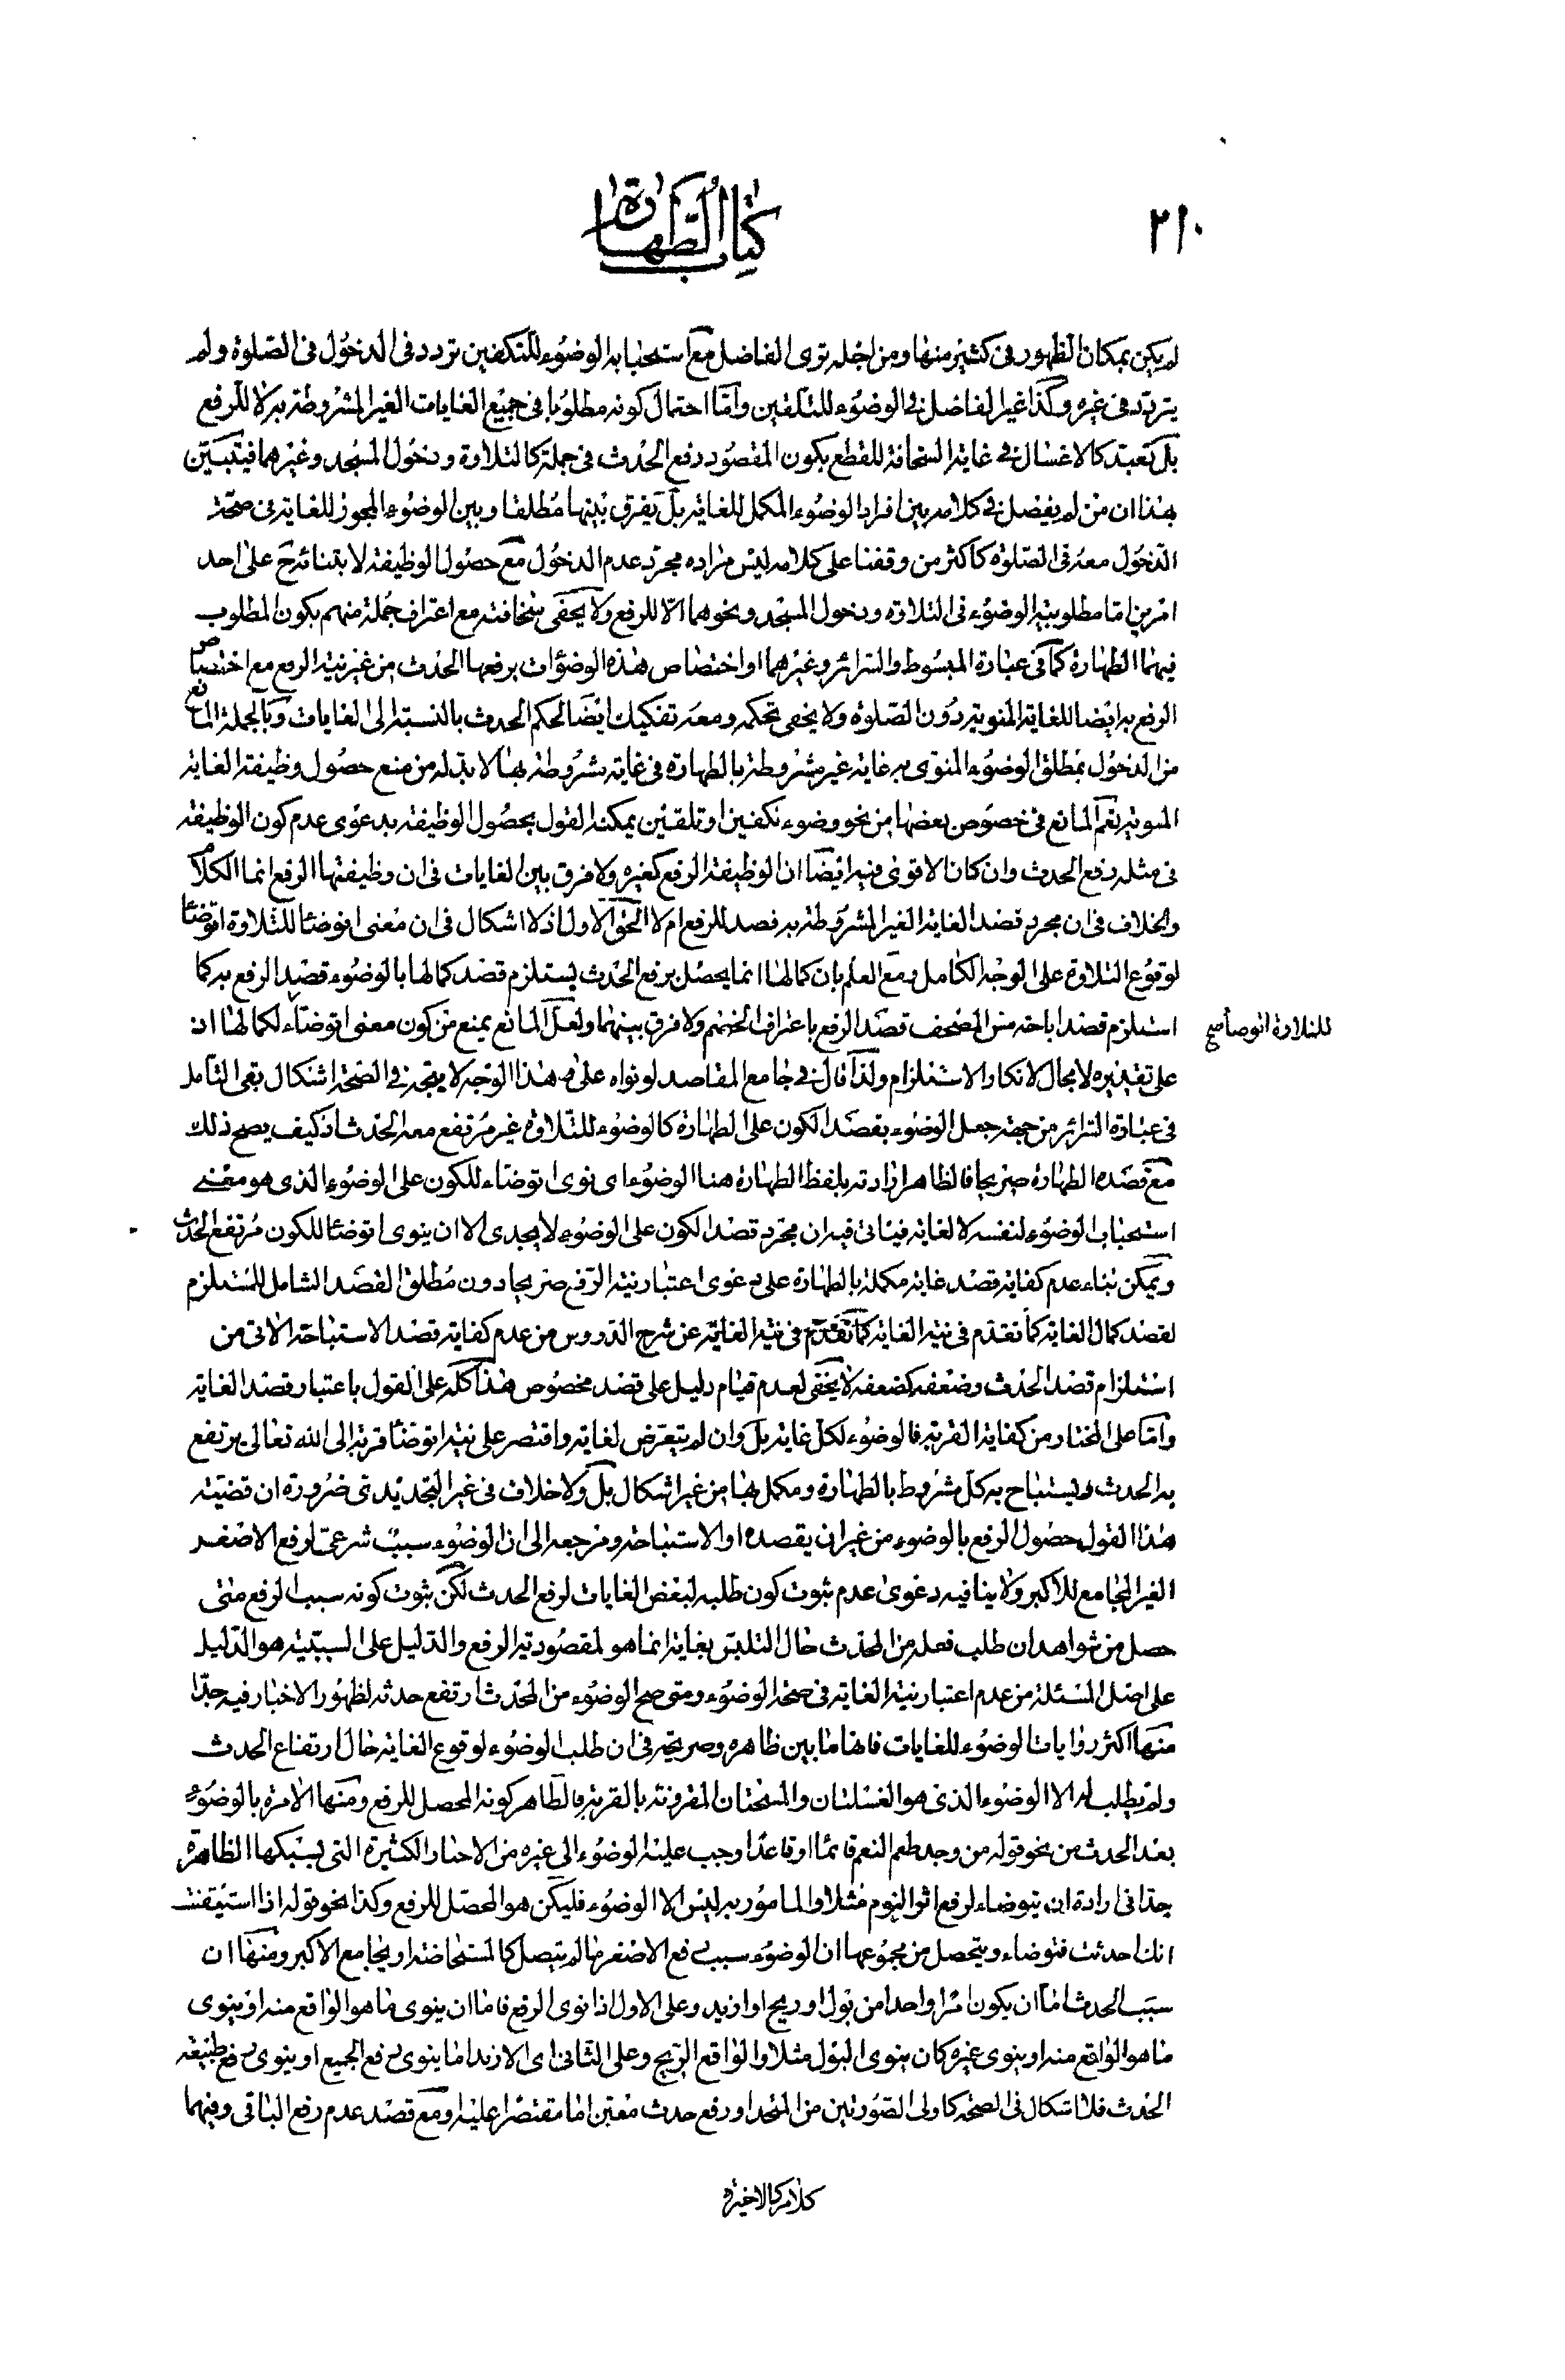 ٢١٠
كتاب الطهارة
لم يكن بمكان الظهور فى كثير منها ومن اجله ترى الفاضل مع استحبابه الوضوء للتكفين تردد فى الدخول فى الصلوة ولم
يتردد فى غيره وكذا غير الفاضل فى الوضوء للتلقين وامّا احتمال كونه مطلوبا فى جميع الغايات الغير المشروطة به لا للرفع
بل تعبد كالاغسال فى غاية السخافة للقطع بكون المقصود رفع الحدث فى جملة كالتلاوة ودخول المسجد وغيرهما فيتبين
بهذا ان من لم يفصل فى كلامه بين افراد الوضوء المكمل للغاية بل يفرق بينها مطلقا وبين الوضوء المجوز للغاية فى صحة
الدخول معه فى الصلوة كاكثر من وقفنا على كلامه ليس مراده مجرد عدم الدخول مع حصول الوظيفة لابتنائه ح على احد
امرين امّا مطلوبية الوضوء فى التلاوة ودخول المسجد ونحوهما الا للرفع ولا يخفى سخافته مع اعتراف جملة منهم بكون المطلوب
فيهما الطهارة كما فى عبارة المبسوط والسرائر وغيرهما او اختصاص هذه الوضوءات برفعها الحدث من غير نية الرفع مع اختصاص
الرفع به ايضا للغاية المنوية دون الصلوة ولا يخفى تحكمه ومعه تفكيك ايضا لحكم الحدث بالنسبة الى الغايات وبالجملة المانع
من الدخول بمطلق الوضوء المنوى به غاية غير مشروطة بالطهارة فى غاية مشروطة بها لا بد له من منع حصول وظيفة الغاية
المنوية نعم المانع فى خصوص بعضها من نحو وضوء تكفين او تلقين يمكنه القول بحصول الوظيفة بدعوى عدم كون الوظيفة
فى مثله رفع الحدث وان كان الاقوى فيه ايضا ان الوظيفة الرفع كغيره ولا فرق بين الغايات فى ان وظيفتها الرفع انما الكلام
والخلاف فى ان مجرد قصد الغاية الغير المشروطة به قصد للرفع ام لا الحق الاول اذ لا اشكال فى ان معنى اتوضأ للتلاوة اتوضأ
لوقوع التلاوة على الوجه الكامل ومع العلم بان كمالها انما يحصل برفع الحدث يستلزم قصد كمالها بالوضوء قصد الرفع به كما
استلزم قصد اباحة مس المصحف قصد الرفع باعتراف الخصم ولا فرق بينهما ولعل المانع يمنع من كون معنى اتوضأ لكمالها اذ
للتلاوة اتوضأ صح
على تقديره لا مجال لانكار الاستلزام ولذا قال فى جامع المقاصد لو نواه على هذا الوجه لا يتجه فى الصحة اشكال بقى التامل
فى عبارة السرائر من جهة جعل الوضوء بقصد الكون على الطهارة كالوضوء للتلاوة غير مرتفع معه الحدث اذ كيف يصح ذلك
مع قصده الطهارة صريحا فالظاهر ارادته بلفظ الطهارة هنا الوضوء اى نوى اتوضاء للكون على الوضوء الذى هو معنى
استحباب الوضوء لنفسه لا لغاية فيتاتى فيه ان مجرد قصد الكون على الوضوء لا يجدى الا ان ينوى اتوضأ للكون مرتفع الحدث
ويمكن بناء عدم كفاية قصد غاية مكملة بالطهارة على دعوى اعتبار نية الرفع صريحا دون مطلق القصد الشامل للمستلزم
لقصد كمال الغاية كما تقدم فى نية الغاية كما تقدم فى نية الغاية عن شرح الدروس من عدم كفاية قصد الاستباحة الاتى من
استلزام قصد الحدث وضعفه كضعفه لا يخفى لعدم قيام دليل على قصد مخصوص هذا كله على القول باعتبار قصد الغاية
وامّا على المختار من كفاية القربة فالوضوء لكل غاية بل وان لم يتعرض لغاية واقتصر على نية اتوضأ قربة الى الله تعالى يرتفع
به الحدث ويستباح به كل مشروط بالطهارة ومكمل بها من غير اشكال بل ولا خلاف فى غير التجديدى ضرورة ان قضية
هذا القول حصول الرفع بالوضوء من غير ان يقصده او الاستباحة ومرجعه الى ان الوضوء سبب شرعى لرفع الاصغر
الغير المجامع للاكبر ولا ينافيه دعوى عدم ثبوت كون طلبه لبعض الغايات لرفع الحدث لكن ثبوت كونه سببا لرفع متى
حصل من شواهد ان طلب فعله من المحدث حال التلبس بغاية انما هو لمقصودية الرفع والدليل على السببية هو الدليل
على اصل المسئلة من عدم اعتبار نية الغاية فى صحة الوضوء ومتى صح الوضوء من المحدث ارتفع حدثه لظهور الاخبار فيه جدّا
منها اكثر روايات الوضوء للغايات فانها ما بين ظاهره وصريحة فى ان طلب الوضوء لوقوع الغاية حال ارتفاع الحدث
ولم يطلب له الا الوضوء الذى هو الغسلتان والمسحتان المقرونة بالقربة فالظاهر كونه المحصل للرفع ومنها الامرة بالوضوء
بعد الحدث من نحو قوله من وجد طعم النوم قائما او قاعدا وجب عليه الوضوء الى غيره من الاخبار الكثيرة التى يستكها الظاهرة
جدّا فى ارادة ان يتوضاء لرفع اثر النوم مثلا والمامور به ليس الا الوضوء فليكن هو المحصّل للرفع وكذا نحو قوله اذا استيقنت
انك احدثت فتوضاء ويتحصل من مجموعها ان الوضوء سبب رفع الاصغر ما لم يتصل كالمستحاضة او يجامع الاكبر ومنها ان
سبب الحدث امّا ان يكون امرا واحدا من بول او ريح او ازيد وعلى الاول اذا نوى الرفع فاما ان ينوى ما هو الواقع منه او ينوى
ما هو الواقع منه او ينوى غيره كان ينوى البول مثلا والواقع الريح وعلى الثانى اى الازيد اما ينوى رفع الجميع او ينوى رفع طبيعة
الحدث فلا اشكال فى الصحة كاولى الصورتين من المتحد او رفع حدث معين امّا مقتصرا عليه او مع قصد عدم رفع الباقى وفيهما
كلام كالاخيرة